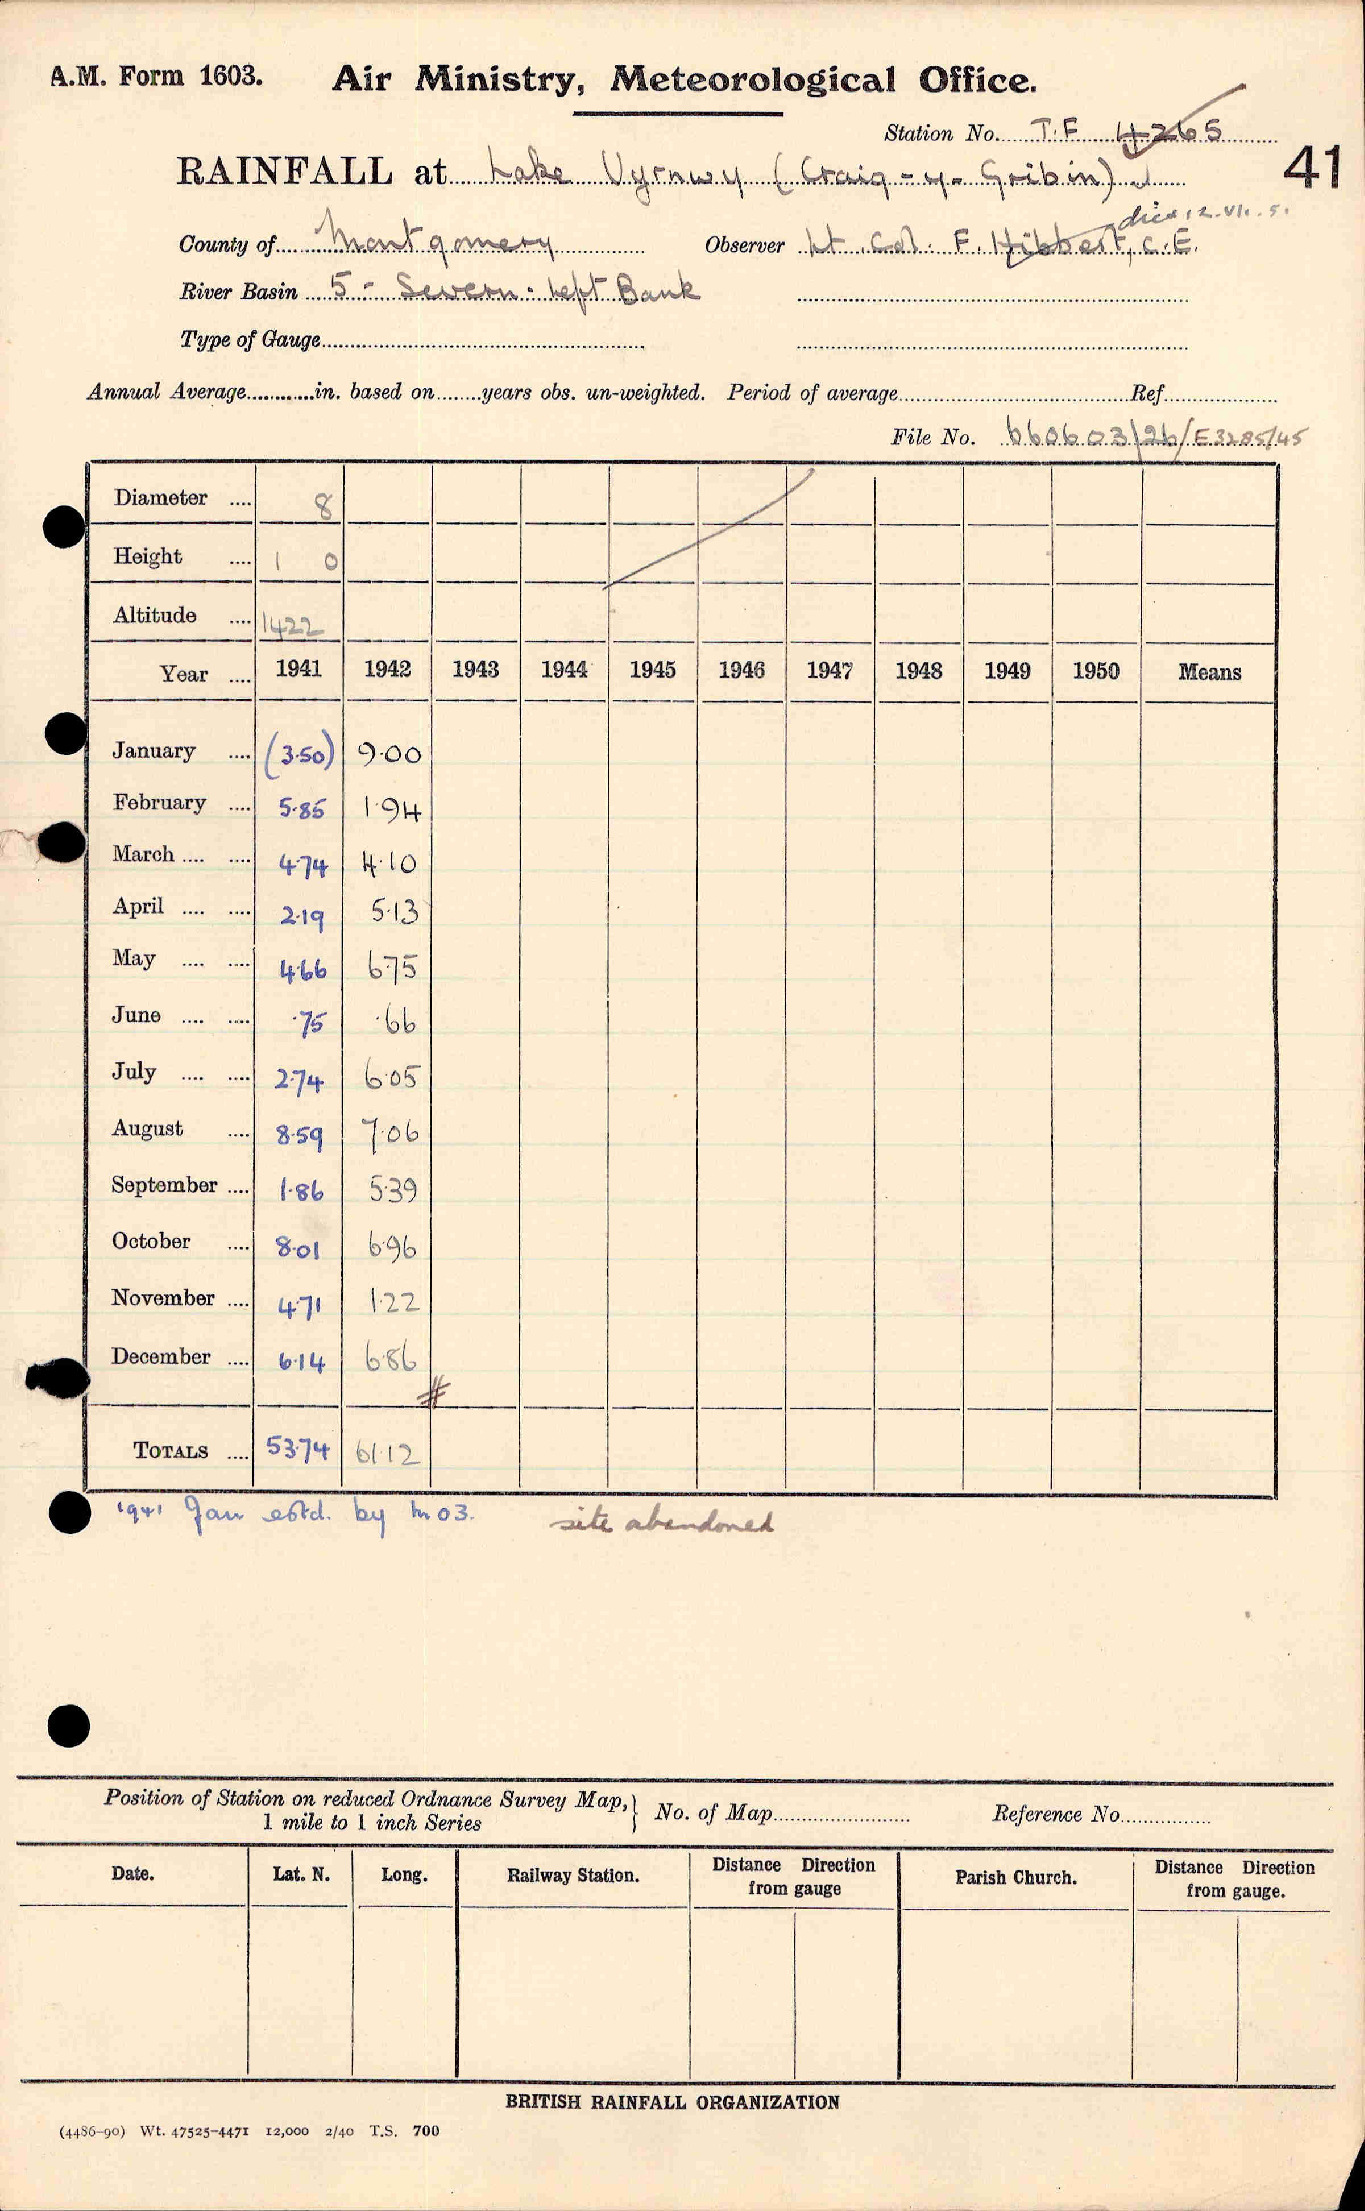 A.M. Form 1603. Air Ministry, Meteorological Office.
Station No. T.F 4265
41
RAINFALL at Lake Vyrnwy (Craig-y-Gribin)
died 12.VI.5
County of Montgomery Observer Lt. Col. F. Hibbert, C.E.
River Basin 5 - Severn - Left Bank
Type of Gauge
Annual Average in. based on years obs. un-weighted. Period of average Ref.
File No. 660603/26/E3285/45
Diameter 8
Height 1 0
Altitude 1422
Year 1941 1942 1943 1944 1945 1946 1947 1948 1949 1950 Means
January (3.50) 9.00
February 5.85 1.94
March 4.74 4.10
April 2.19 5.13
May 4.66 6.75
June .75 .66
July 2.74 6.05
August 8.59 7.06
September 1.86 5.39
October 8.01 6.96
November 4.71 1.22
December 6.14 6.86
TOTALS 53.74 61.12
1941 Jan estd. by M03. site abandoned
Position of Station on reduced Ordnance Survey Map,} No. of Map Reference No.
1 mile to 1 inch Series
Date. Lat. N. Long. Railway Station. Distance Direction from gauge Parish Church. Distance Direction from gauge.
BRITISH RAINFALL ORGANIZATION
(4486-90) Wt. 47525-4471 12,000 2/40 T.S. 700